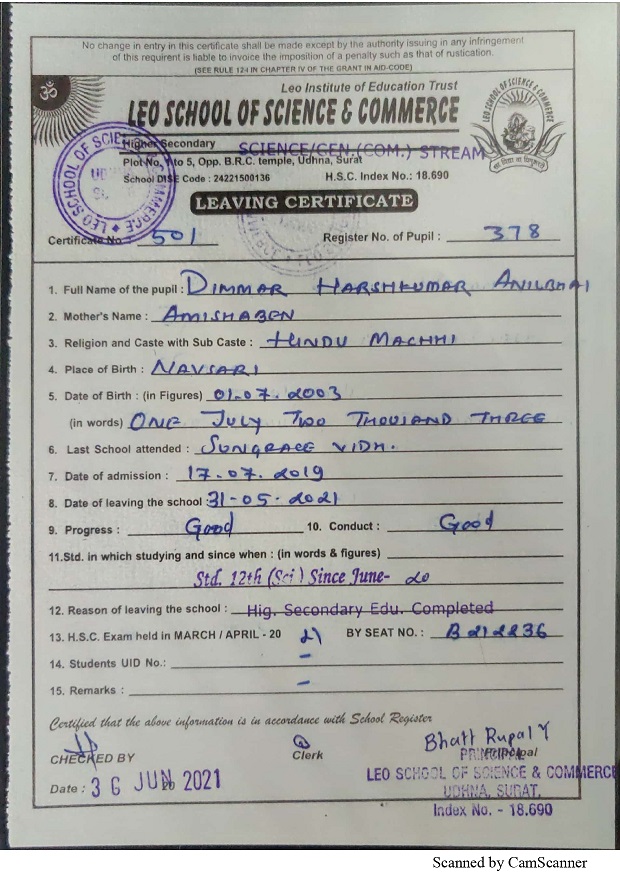 No change in entry in this certificate shall be made except by the authority issuing in any infringement
of this requirent is liable to invoice the imposition of a penalty such as that of rustication.
(SEE RULE 124 IN CHAPTER IV OF THE GRANT IN AID-CODE)
Leo Institute of Education Trust
LEO SCHOOL OF SCIENCE & COMMERCE
Higher Secondary SCIENCE/GEN.(COM.) STREAM
Plot No. 1 to 5, Opp. B.R.C. temple, Udhna, Surat
School DISE Code : 24221500136 H.S.C. Index No.: 18.690
LEAVING CERTIFICATE
Certificate No. 501 Register No. of Pupil : 378
1. Full Name of the pupil : DIMMAR HARSHKUMAR ANILBHAI
2. Mother's Name : AMISHABEN
3. Religion and Caste with Sub Caste : HINDU MACHHI
4. Place of Birth : NAVSARI
5. Date of Birth : (in Figures) 01.07.2003
(in words) ONE JULY TWO THOUSAND THREE
6. Last School attended : SUNGRACE VIDH.
7. Date of admission : 17.07.2019
8. Date of leaving the school : 31-05-2021
9. Progress : Good 10. Conduct : Good
11. Std. in which studying and since when : (in words & figures)
Std. 12th (Sci) Since June- 20
12. Reason of leaving the school : Hig. Secondary Edu. Completed
13. H.S.C. Exam held in MARCH / APRIL - 20 21 BY SEAT NO.: B 212236
14. Students UID No.: -
15. Remarks : -
Certified that the above information is in accordance with School Register
CHECKED BY Clerk Bhatt Rupal Y
PRINCIPAL
Date : 30 JUN 2021 LEO SCHOOL OF SCIENCE & COMMERCE
UDHNA, SURAT.
Index No. - 18.690
Scanned by CamScanner